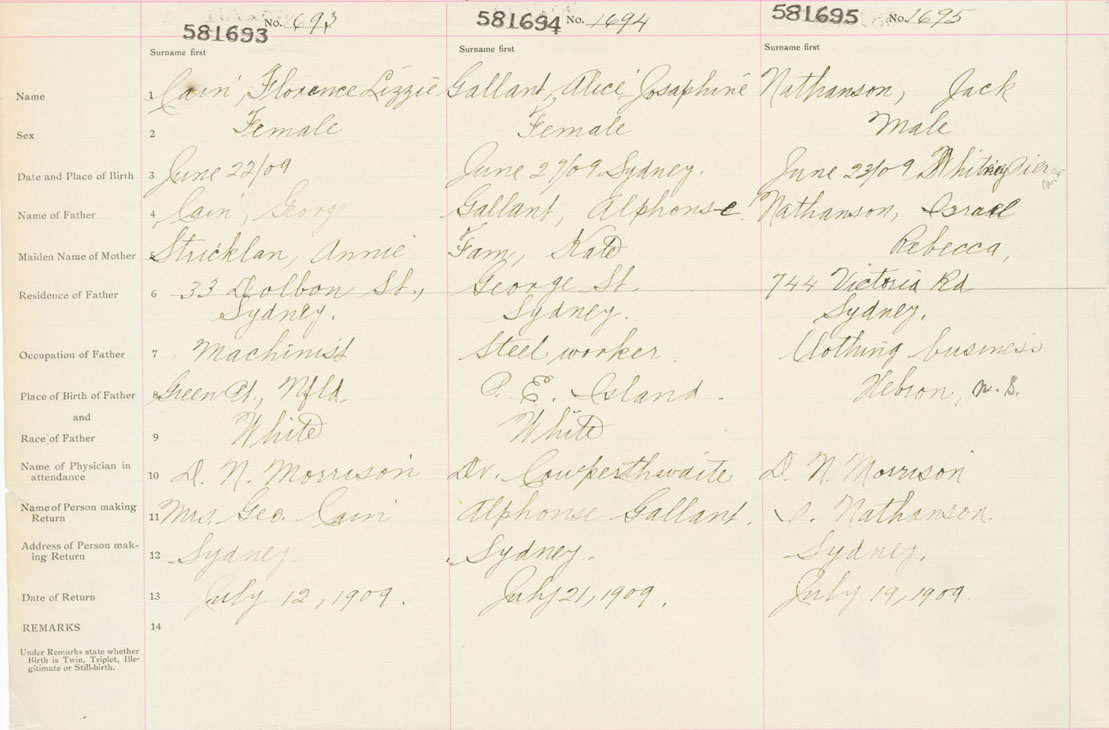 581693 No. 1693 581694 No. 1694 581695 No. 1695
Surname first Surname first Surname first
Name 1 Cain, Florence Lizzie Gallant, Alice Josaphine Nathanson, Jack
Sex 2 Female Female Male
Date and Place of Birth 3 June 22/09 June 27/09 Sydney. June 23/09 Whitney Pier
Name of Father 4 Cain, George Gallant, Alphonse Nathanson, Israel
Maiden Name of Mother 5 Stricklan, Annie Fam, Kate Rebecca,
Residence of Father 6 33 Dolbon St., George St. 744 Victoria Rd
Sydney. Sydney. Sydney.
Occupation of Father 7 Machinist Steel worker. Clothing business
Place of Birth of Father 8 Green Pt., Nfld P. E. Island. Hebron, N. S.
and
Race of Father 9 White White
Name of Physician in
attendance 10 D. N. Morrison Dr. Cowperthwaite D. N. Morrison
Name of Person making
Return 11 Mrs. Geo. Cain Alphonse Gallant. I. Nathanson.
Address of Person mak-
ing Return 12 Sydney. Sydney. Sydney.
Date of Return 13 July 12, 1909. July 21, 1909. July 19, 1909
REMARKS 14
Under Remarks state whether
Birth is Twin, Triplet, Ille-
gitimate or Still-birth.